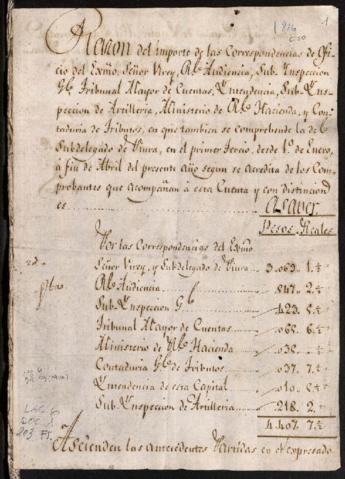 1816
1
Razon del importe de las Correspondencias de Ofi
cio del Exmo. Señor Virey, Rl. Audiencia, Sub Ynspeccion
Gl. Tribunal Mayor de Cuentas, Yntendencia, Sub Yns
peccion de Artilleria, Ministerio de Rl. Hacienda, y Con
taduria de Tributos, en que tambien se comprehende la del
Subdelegado de Piura, en el primer Tercio, desde 1º. de Enero,
á fin de Abril del presente Año segun se acredita de los Com
probantes que acompañan á esta Cuenta y con distincion
es A Saver
Pesos Reales
Por las Correspondencias del Exmo
Señor Virey, y Subdelegado de Piura 3.063. 1.½
Rl. Audiencia .847. 2.½
Sub Ynspeccion Gl. .123.
Tribunal Mayor de Cuentas
Ministerio de Rl. Hacienda
Contaduria Gl. de Tributos .037. 7.½
Yntendencia de esta Capital
Sub Ynspeccion de Artilleria .218. 2
4.407. 7.½
Ascienden las antecedentes Partidas en el expresado